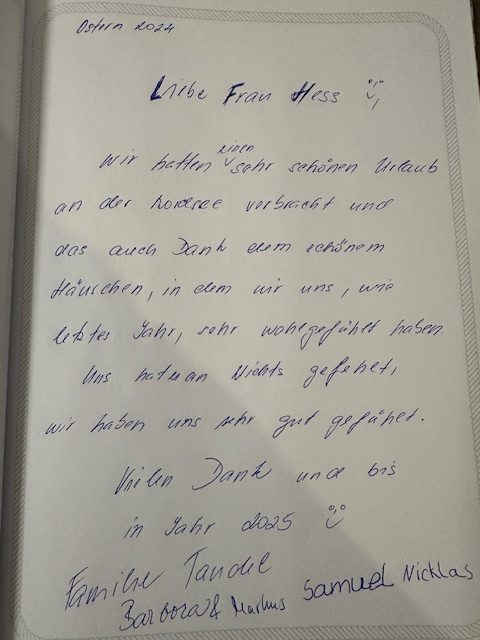 Ostern 2024
Liebe Frau Hess
einen
wir hatten sehr schönen Urlaub
an der Nordsee verbracht und
das auch Dank dem schönem
Häuschen, in dem wir uns, wie
letztes Jahr, sehr wohlgefühlt haben
Uns hat an Nichts gefehlt,
wir haben uns sehr gut gefühlt.
Vielen Dank und bis
in Jahr 2025
Familie
Barbora & Markus Samuel Nicklas